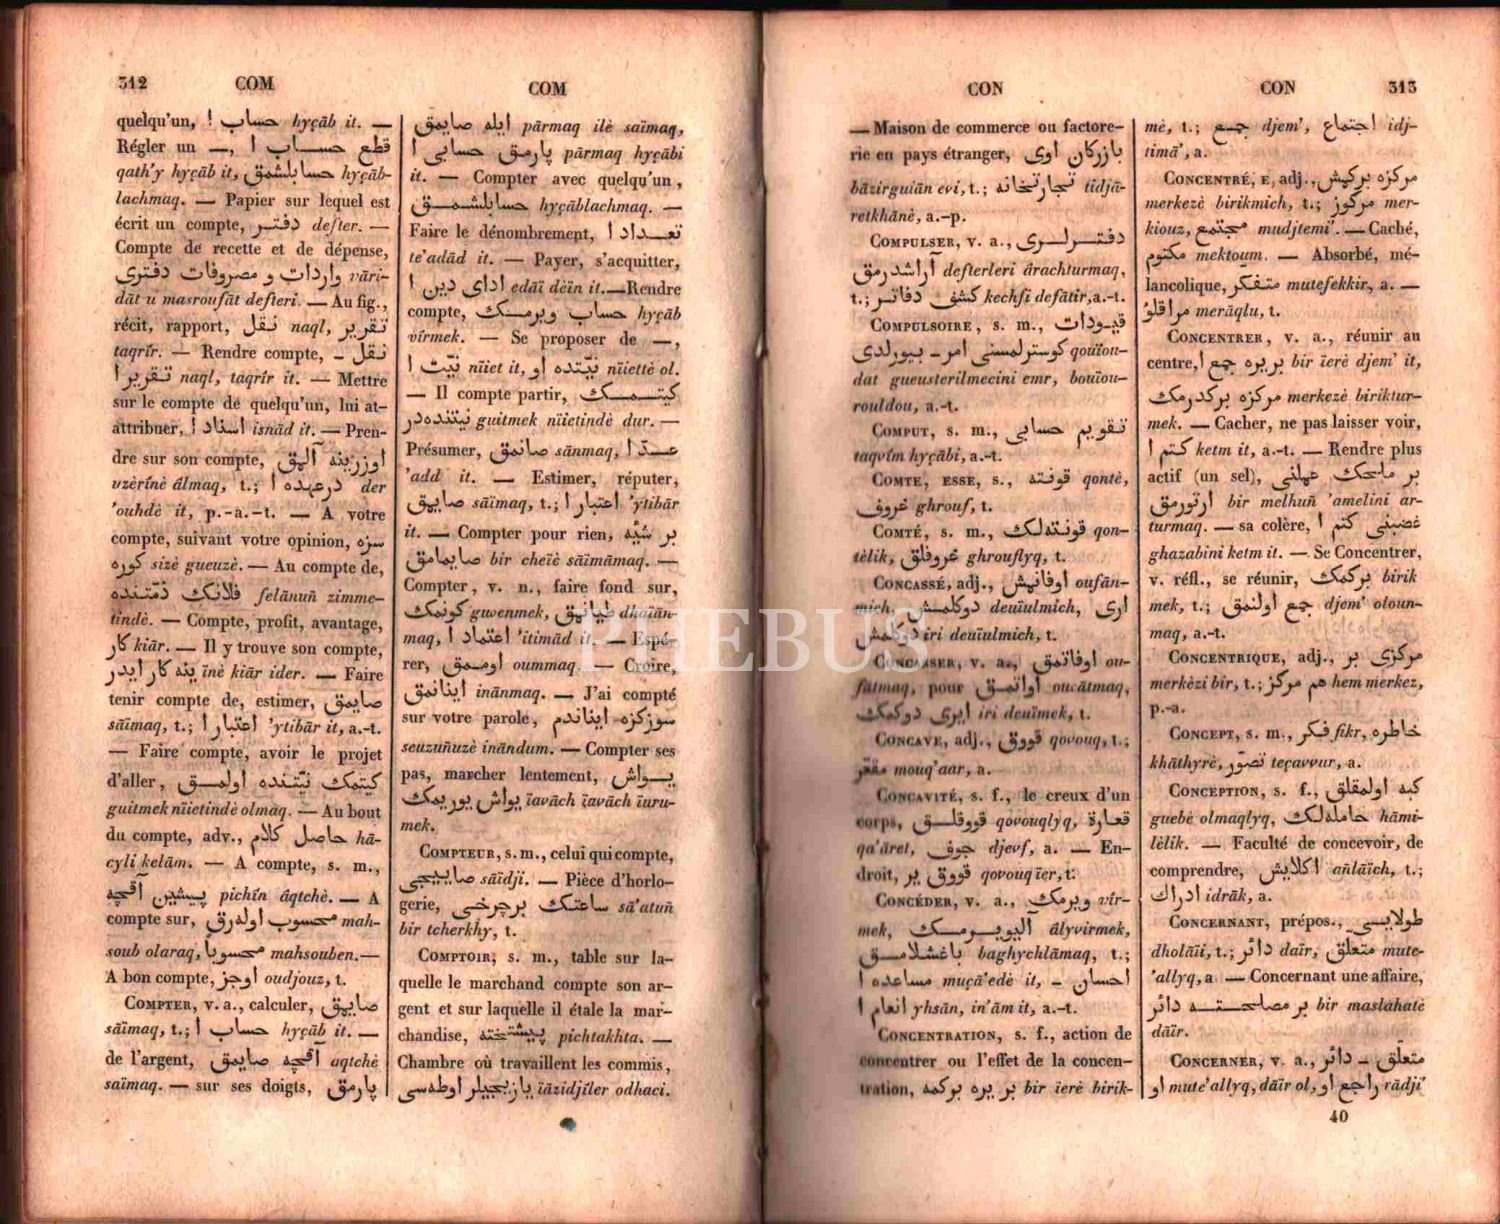 312 COM
quelqu'un, حساب ا hyçāb it. —
Régler un —, قطع حساب ا
qath'y hyçāb it, حسابلشمق hyçāb-
lachmaq. — Papier sur lequel est
écrit un compte, دفتر defter. —
Compte de recette et de dépense,
واردات و مصروفات دفترى vāri-
dāt u masroufāt defteri. — Au fig.,
récit, rapport, نقل naql, تقرير
taqrír. — Rendre compte, نقل -
تقرير ا naql, taqrír it. — Mettre
sur le compte de quelqu'un, lui at-
attribuer, اسناد ا isnād it. — Pren-
dre sur son compte, اوزرينه آلمق
uzèrínè âlmaq, t.; درعهده ا der
'ouhdè it, p.-a.-t. — A votre
compte, suivant votre opinion, سزه
كوره sizè gueuzè. — Au compte de,
فلانك ذمتنده felānuñ zimme-
tindè. — Compte, profit, avantage,
كار kiār. — Il y trouve son compte,
ينه كار ايدر ïnè kiār ider. — Faire
tenir compte de, estimer, صايمق
sāïmaq, t.; اعتبار ا 'ytibār it, a.-t.
— Faire compte, avoir le projet
d'aller, كيتمك نيتنده اولمق
guitmek nïietindè olmaq. — Au bout
du compte, adv., حاصل كلام hā-
cyli kelām. — A compte, s. m.,
پيشين آقچه pichín âqtchè. — A
compte sur, محسوب اولهرق mah-
soub olaraq, محسوبا mahsouben. —
A bon compte, اوجز oudjouz, t.
COMPTER, v. a., calculer, صايمق
sāïmaq, t.; حساب ا hyçāb it. —
de l'argent, آقچه صايمق aqtchè
saïmaq. — sur ses doigts, پارمق
COM
ايله صايمق pārmaq ilè saïmaq,
پارمق حسابى ا pārmaq hyçābi
it. — Compter avec quelqu'un,
حسابلشمق hyçāblachmaq. —
Faire le dénombrement, تعداد ا
te'adād it. — Payer, s'acquitter,
اداى دين ا edāï dèïn it. — Rendre
compte, حساب ويرمك hyçāb
vírmek. — Se proposer de —,
نيت ا nïiet it, نيتنده او nïiettè ol.
— Il compte partir, كيتمك
نيتندهدر guitmek nïietindè dur. —
Présumer, صانمق sānmaq, عد ا
'add it. — Estimer, réputer,
صايمق sāïmaq, t.; اعتبار ا 'ytibār
it. — Compter pour rien, بر شيه
صايمامق bir cheïè sāïmāmaq. —
Compter, v. n., faire fond sur,
كونمك gwenmek, طيانمق dhaïān-
maq, اعتماد ا 'itimād it. — Espé-
rer, اومق oummaq. — Croire,
اينانمق inānmaq. — J'ai compté
sur votre parole, سوزكزه ايناندم
seuzuñuzè ināndum. — Compter ses
pas, marcher lentement, يواش
يواش يوريمك ïavāch ïavāch ïuru-
mek.
COMPTEUR, s. m., celui qui compte,
صاييجى sāïdji. — Pièce d'horlo-
gerie, ساعتك برچرخى sā'atuñ
bir tcherkhy, t.
COMPTOIR, s. m., table sur la-
quelle le marchand compte son ar-
gent et sur laquelle il étale la mar-
chandise, پيشتخته pichtakhta. —
Chambre où travaillent les commis,
يازيجيلر اوطهسى ïāzidjiler odhaci.
CON
— Maison de commerce ou factore-
rie en pays étranger, بازركان اوى
bāzirguiān evi, t.; تجارتخانه tidjā-
retkhānè, a.-p.
COMPULSER, v. a., دفترلرى
آراشدرمق defterleri ârachturmaq,
t.; كشف دفاتر kechfi defātir, a.-t.
COMPULSOIRE, s. m., قيودات
كوسترلمسنى امر - بيورلدى qouïou-
dat gueusterilmecini emr, bouïou-
rouldou, a.-t.
COMPUT, s. m., تقويم حسابى
taqvím hyçābi, a.-t.
COMTE, ESSE, s., قونته qontè,
غروف ghrouf, t.
COMTÉ, s. m., قونتهلك qon-
tèlik, غروفلق ghrouflyq, t.
CONCASSÉ, adj., اوفانمش oufān-
mich, دوكلمش deuïulmich, ارى
دوكلمش iri deuïulmich, t.
CONCASSER, v. a., اوفاتمق ou-
fātmaq, pour اواتمق ouvātmaq,
ايرى دوكمك iri deuïmek, t.
CONCAVE, adj., قووق qovouq, t.;
مقعر mouq'aar, a.
CONCAVITÉ, s. f., le creux d'un
corps, قووقلق qovouqlyq, قعارة
qa'āret, جوف djevf, a. — En-
droit, قووق ير qovouq ïer, t.
CONCÉDER, v. a., ويرمك vír-
mek, آليويرمك âlyvirmek,
باغشلامق baghychlāmaq, t.;
مساعده ا muçā'edè it, احسان -
انعام ا yhsān, in'ām it, a.-t.
CONCENTRATION, s. f., action de
concentrer ou l'effet de la concen-
tration, بر يره بركمه bir ïerè birik-
CON 313
mè, t.; جمع djem', اجتماع idj-
timā', a.
CONCENTRÉ, E, adj., مركزه بركمش
merkezè birikmich, t.; مركوز mer-
kiouz, مجتمع mudjtemi'. — Caché,
مكتوم mektoum. — Absorbé, mé-
lancolique, متفكر mutefekkir, a. —
مراقلو merāqlu, t.
CONCENTRER, v. a., réunir au
centre, بر يره جمع ا bir ïerè djem' it,
مركزه بركدرمك merkezè biriktur-
mek. — Cacher, ne pas laisser voir,
كتم ا ketm it, a.-t. — Rendre plus
actif (un sel), بر ملحك عملنى
ارتورمق bir melhuñ 'amelini ar-
turmaq. — sa colère, غضبنى كتم ا
ghazabini ketm it. — Se Concentrer,
v. réfl., se réunir, بركمك birik
mek, t.; جمع اولنمق djem' oloun-
maq, a.-t.
CONCENTRIQUE, adj., مركزى بر
merkèzi bir, t.; هم مركز hem merkez,
p.-a.
CONCEPT, s. m., فكر fikr, خاطره
khāthyrè, تصور teçavvur, a.
CONCEPTION, s. f., كبه اولمقلق
guebè olmaqlyq, حاملهلك hāmi-
lèlik. — Faculté de concevoir, de
comprendre, اكلايش añlāïch, t.;
ادراك idrāk, a.
CONCERNANT, prépos., طولايى
dholāïi, t.; دائر daïr, متعلق mute-
'allyq, a. — Concernant une affaire,
بر مصلحته دائر bir maslahatè
dāïr.
CONCERNER, v. a., متعلق - دائر
او mute'allyq, dāïr ol, راجع او rādji'
40